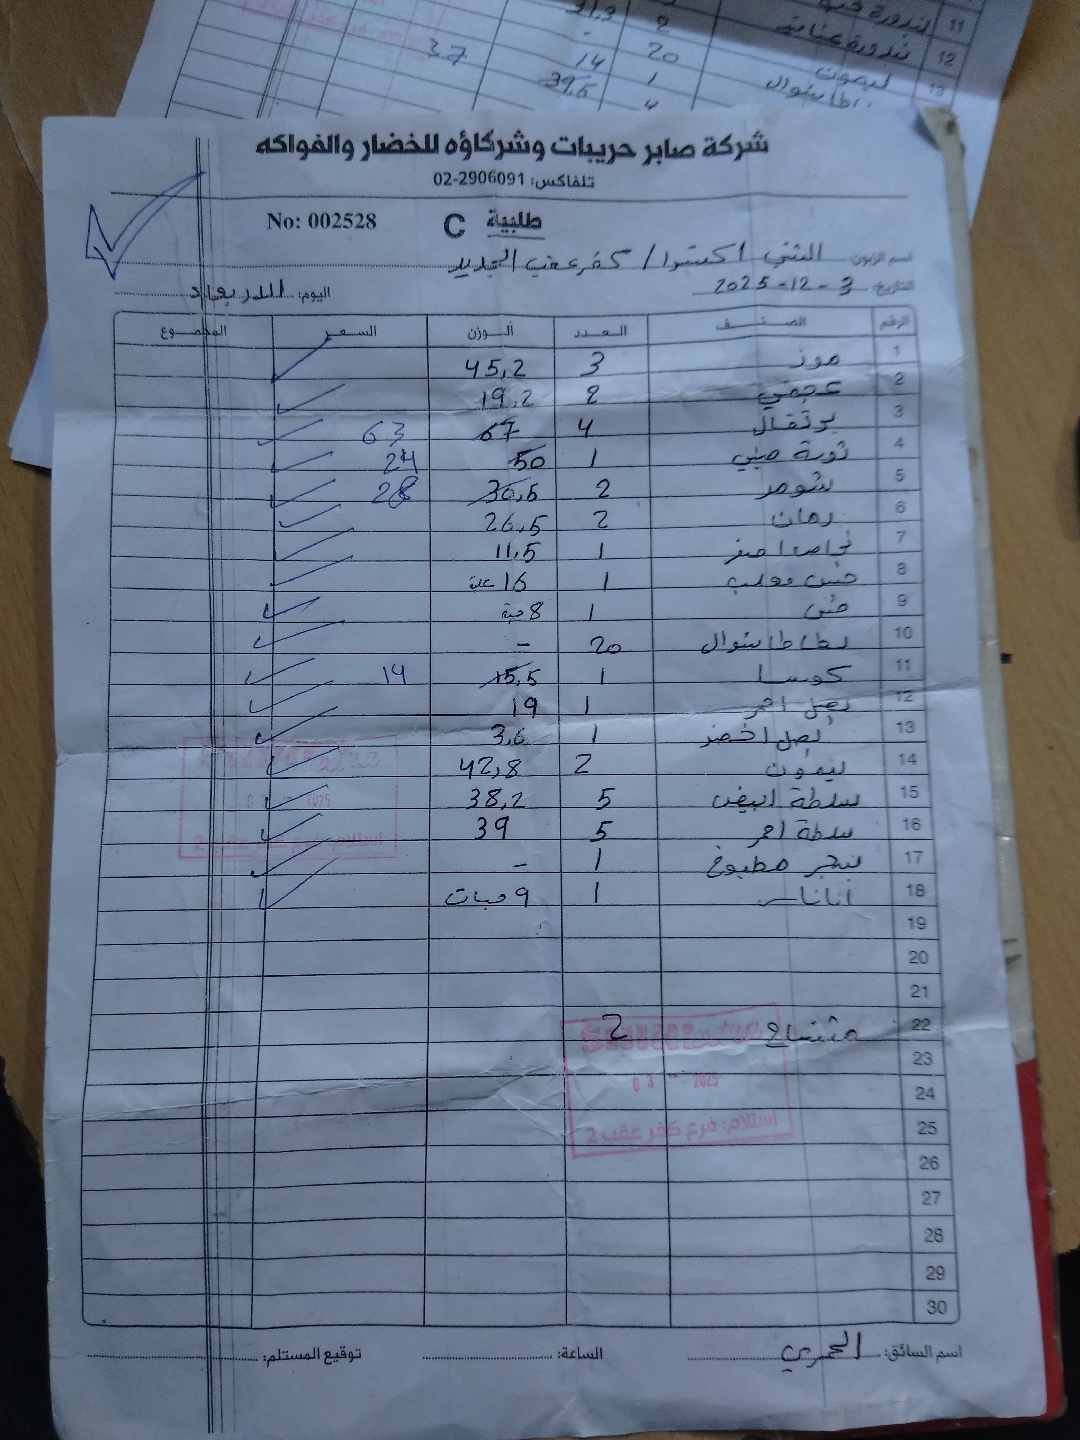 11 بندورة
2 بندورة عناقيد 12
- 20 ليمون 13
37 14 1 بطاطا شوال
39,5 4
شركة صابر حريبات وشركاؤه للخضار والفواكه
تلفاكس: 02-2906091
طلبية C No: 002528
اسم الزبون: الثني اكسترا / كفر عقب الجديد
التاريخ: 3-12-2025 اليوم: الاربعاء
الرقم الصنف العدد الوزن السعر المجموع
1 موز 3 45,2
2 عجمي 2 19,2
3 برتقال 4 67 63
4 ثومة صيني 1 50 24
5 شومر 2 30,5 28
6 رمان 2 26,5
7 نجاص اصفر 1 11,5
8 خس معلب 1 16 علبة
9 خس 1 8 حبة
10 بطاطا شوال 20 -
11 كوسا 1 15,5 14
12 بصل احمر 1 19
13 بصل اخضر 1 3,6
14 ليمون 2 42,8
15 سلطة ابيض 5 38,2
16 سلطة احمر 5 39
17 بنجر مطبوخ 1 -
18 اناناس 1 9 حبات
19
20
21
22 مشتاح 2
23
24
25
26
27
28
29
30
2025
استلام: فرع كفر عقب 2
03 2025
استلام: فرع كفر عقب 2
اسم السائق: العمري الساعة: توقيع المستلم: